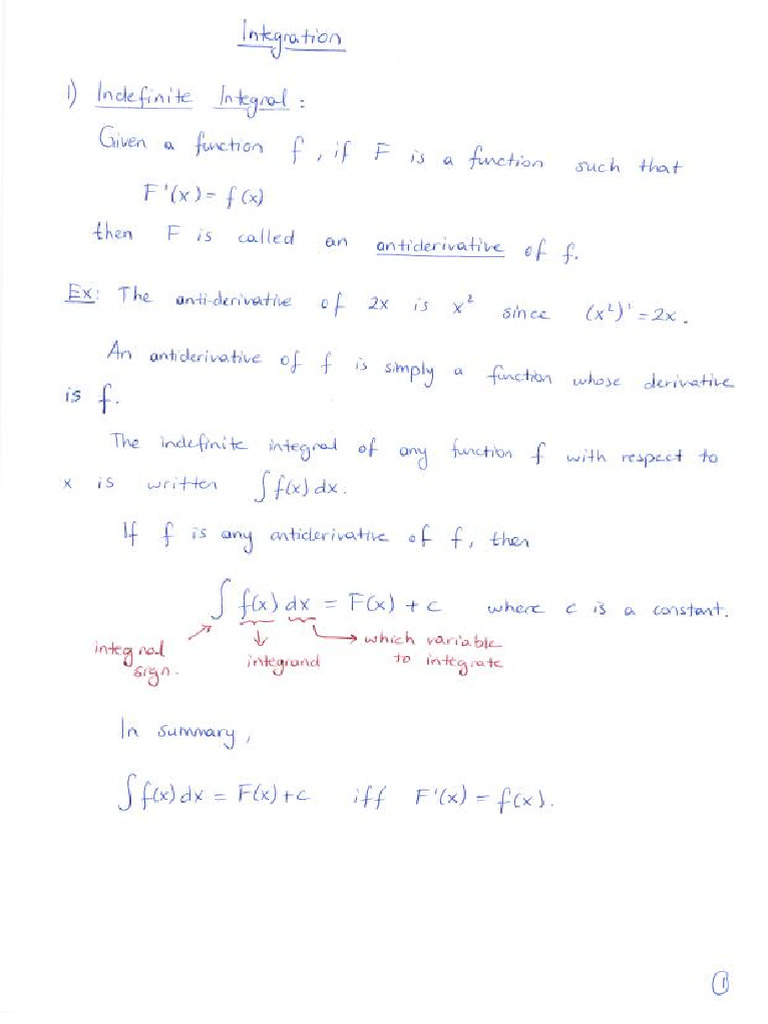 Integration
1) Indefinite Integral :
Given a function f , if F is a function such that
F'(x) = f(x)
then F is called an antiderivative of f.
Ex: The anti-derivative of 2x is x² since (x²)' = 2x .
An antiderivative of f is simply a function whose derivative
is f.
The indefinite integral of any function f with respect to
x is written ∫ f(x) dx .
If f is any antiderivative of f, then
∫ f(x) dx = F(x) + c where c is a constant.
integral sign.
integrand
which variable to integrate
In summary ,
∫ f(x) dx = F(x) + c iff F'(x) = f(x) .
1